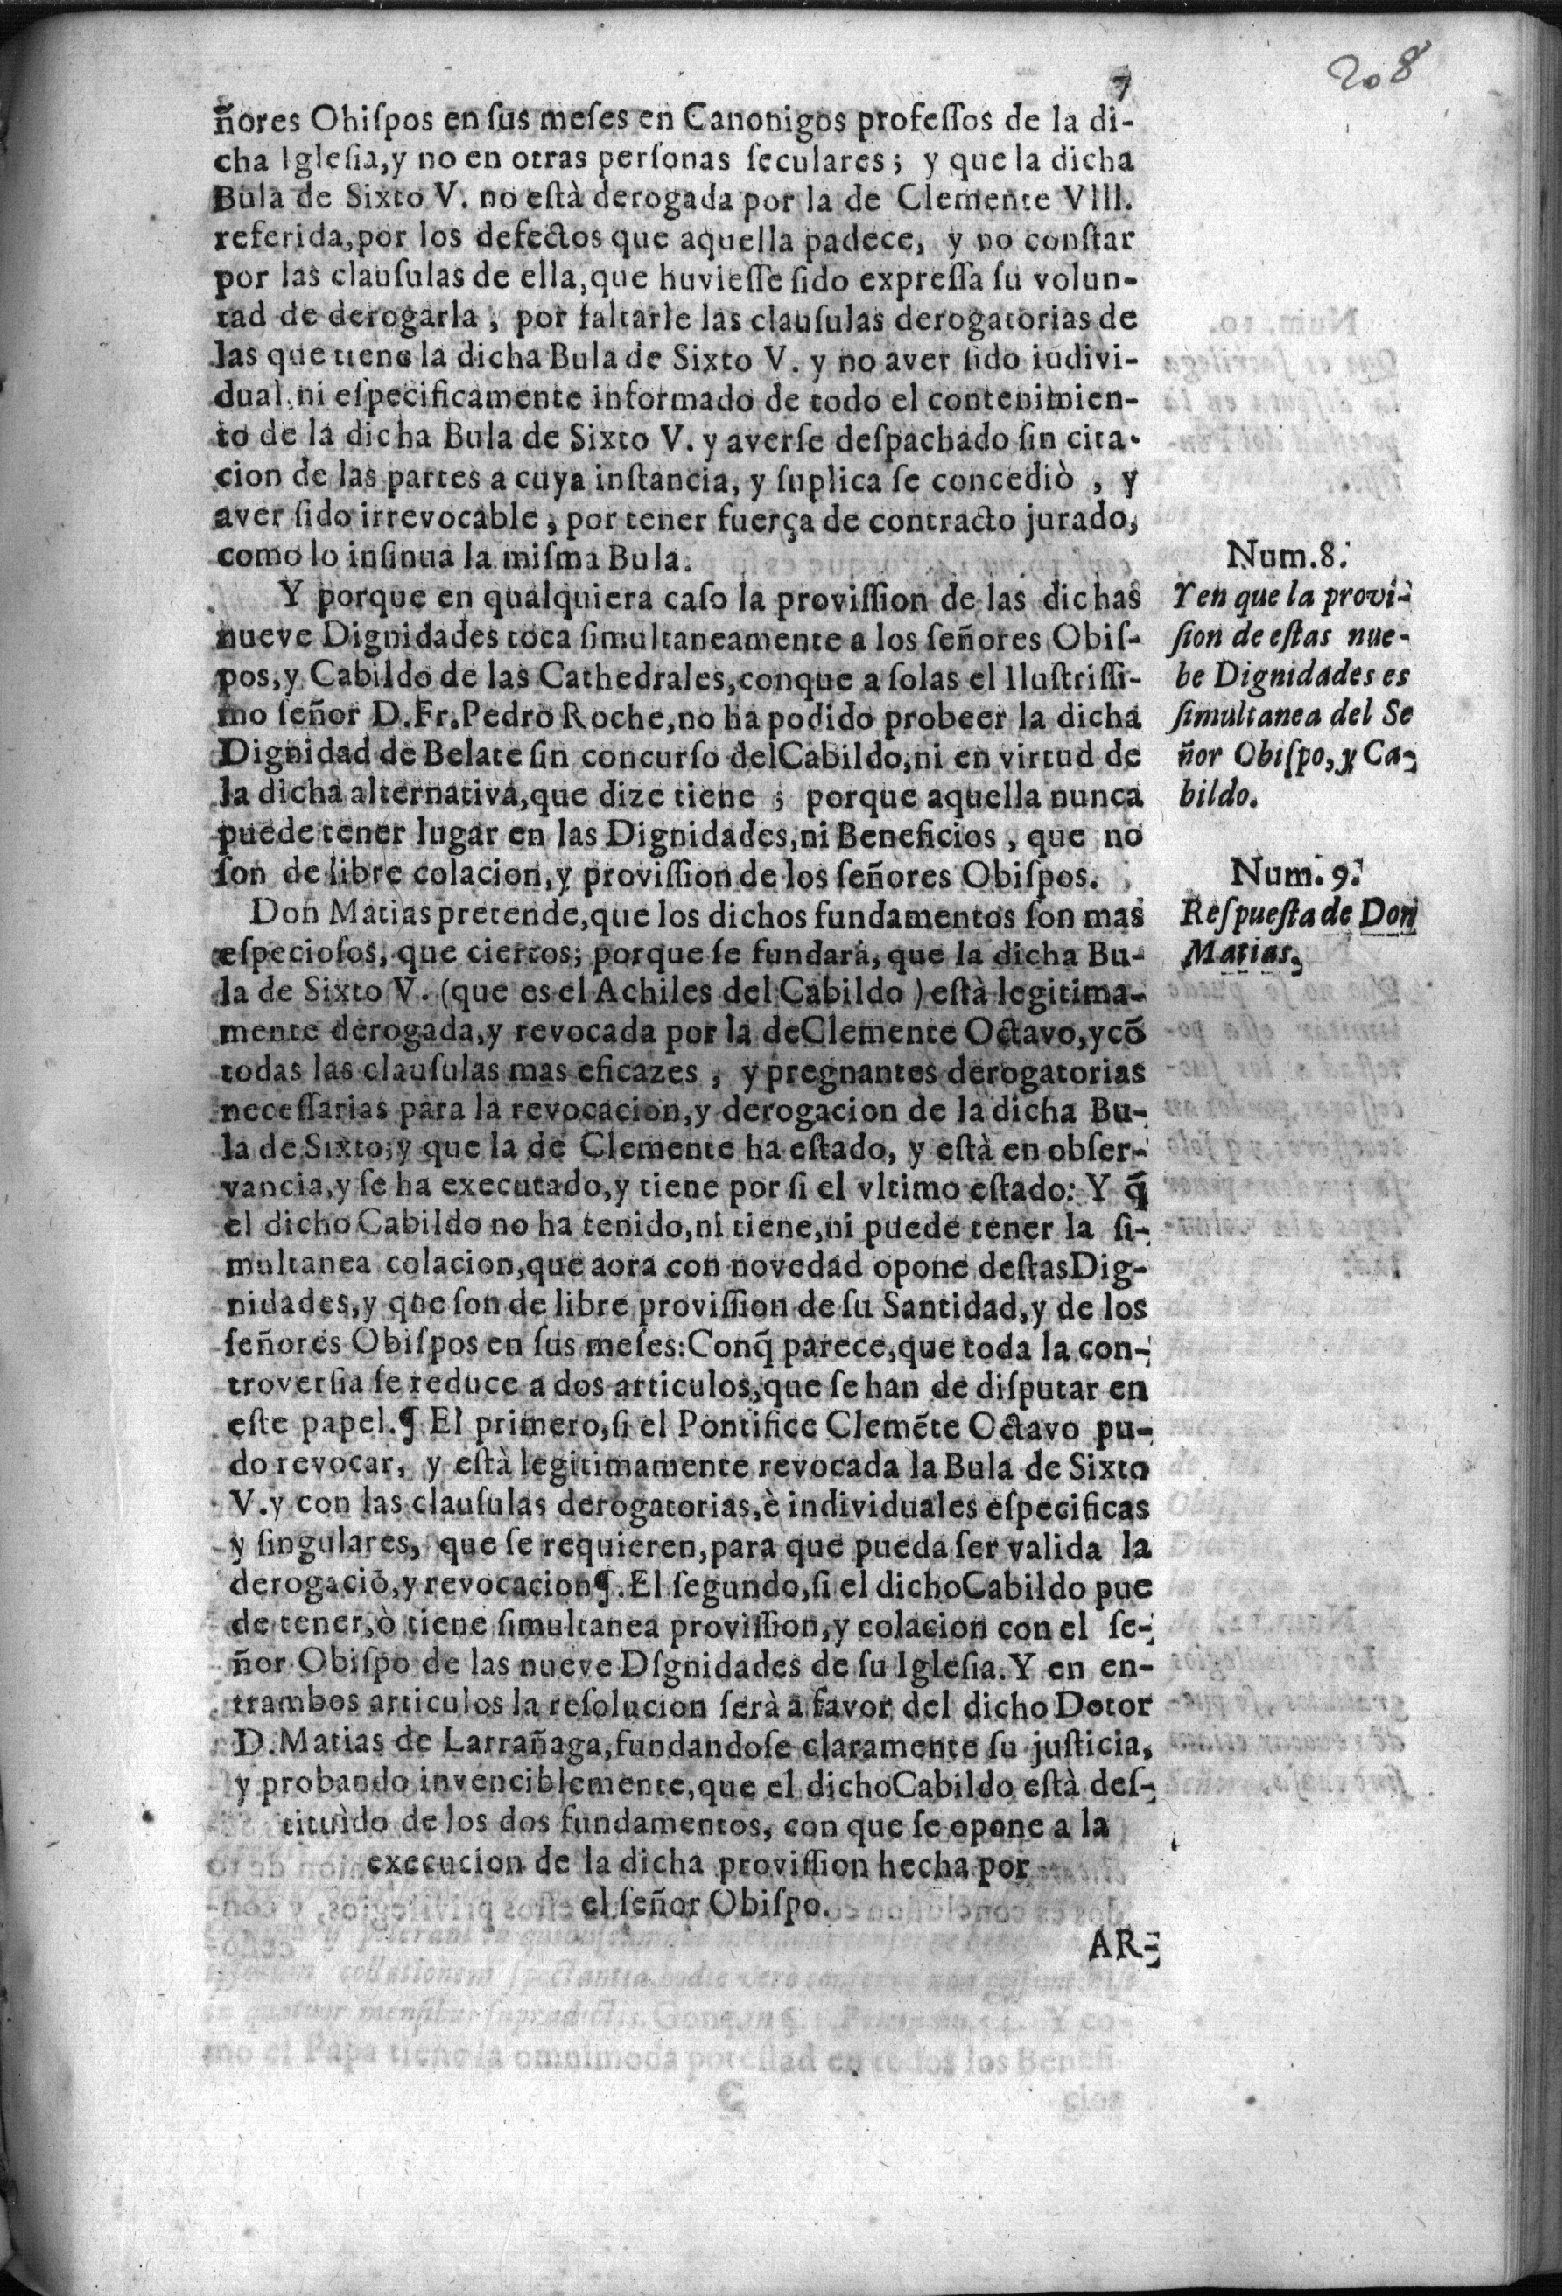 208
7
ñores Ohiſpos en ſus meſes en Canonigos profeſſos de la di-
cha Igleſia,y no en otras perſonas ſeculares; y que la dicha
Bula de Sixto V. no eſtà derogada por la de Clemente VIII.
referida,por los defectos que aquella padece, y no conſtar
por las clauſulas de ella,que huvieſſe ſido expreſſa ſu volun-
tad de derogarla, por faltarle las clauſulas derogatorias de
las que tiene la dicha Bula de Sixto V. y no aver ſido iudivi-
dual,ni eſpecificamente informado de todo el contenimien-
to de la dicha Bula de Sixto V. y averſe deſpachado ſin cita-
cion de las partes a cuya inſtancia, y ſuplica ſe concediò , y
aver ſido irrevocable, por tener fuerça de contracto jurado,
como lo inſinua la miſma Bula.
Num.8.
Y porque en qualquiera caſo la proviſſion de las dichas
nueve Dignidades toca ſimultaneamente a los ſeñores Obiſ-
pos,y Cabildo de las Cathedrales,conque a ſolas el Iluſtriſſi-
mo ſeñor D.Fr.Pedro Roche,no ha podido probeer la dicha
Dignidad de Belate ſin concurſo delCabildo,ni en virtud de
la dicha alternativa,que dize tiene ; porque aquella nunca
puede tener lugar en las Dignidades,ni Beneficios , que no
ſon de libre colacion,y proviſſion de los ſeñores Obiſpos.
Y en que la provi-
ſion de eſtas nue-
be Dignidades es
ſimultanea del Se
ñor Obiſpo,y Ca-
bildo.
Num.9.
Reſpueſta de Don
Matias.
Don Matias pretende,que los dichos fundamentos ſon mas
eſpecioſos, que ciertos; porque ſe fundarà, que la dicha Bu-
la de Sixto V. (que es el Achiles del Cabildo ) eſtà legitima-
mente derogada,y revocada por la deClemente Octavo,y cõ
todas las clauſulas mas eficazes , y pregnantes derogatorias
neceſſarias para la revocacion,y derogacion de la dicha Bu-
la de Sixto;y que la de Clemente ha eſtado, y eſtà en obſer-
vancia,y ſe ha executado,y tiene por ſi el vltimo eſtado: Y q̃
el dicho Cabildo no ha tenido,ni tiene,ni puede tener la ſi-
multanea colacion,que aora con novedad opone deſtasDig-
nidades,y que ſon de libre proviſſion de ſu Santidad,y de los
ſeñores Obiſpos en ſus meſes:Conq̃ parece,que toda la con-
troverſia ſe reduce a dos articulos,que ſe han de diſputar en
eſte papel.¶ El primero,ſi el Pontifice Clemẽte Octavo pu-
do revocar, y eſtà legitimamente revocada la Bula de Sixto
V.y con las clauſulas derogatorias,è individuales eſpecificas
y ſingulares, que ſe requieren,para que pueda ſer valida la
derogaciõ,y revocacion¶.El ſegundo,ſi el dichoCabildo pue
de tener,ò tiene ſimultanea proviſſion,y colacion con el ſe-
ñor Obiſpo de las nueve Dſgnidades de ſu Igleſia.Y en en-
trambos articulos la reſolucion ſerà a favor del dicho Dotor
D.Matias de Larrañaga,fundandoſe claramente ſu juſticia,
y probando invenciblemente,que el dichoCabildo eſtà deſ-
tituìdo de los dos fundamentos, con que ſe opone a la
execucion de la dicha proviſſion hecha por
el ſeñor Obiſpo.
AR-